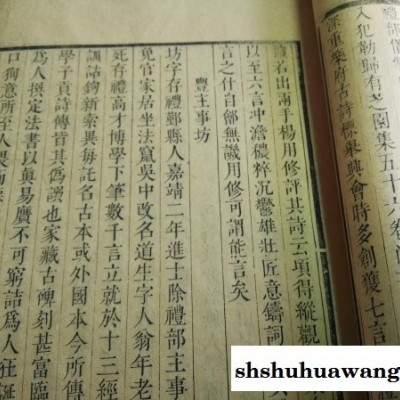 人犯勒歸有芝園集五十六卷
深重樂府古詩標舉興會時多創獲七言
詩若出兩手楊用修評其詩云頃得縱觀
以至六言冲澹穠粹沉鬱雄壯匠意鑄詞
言之什自鄶無譏用修可謂能言矣
豐主事坊
坊字存禮鄞縣人嘉靖二年進士除禮部主事
免官家居坐法竄吳中改名道生字人翁年老
死有奇高才博學下筆數千言立就於十三經
訓詁鉤新索異每託名古本或外國本今所傳
學子貢詩傳皆其偽譔也家藏古碑刻甚富臨
為人撰定法書以真易贋不可窮詰為人狂誕
口狥意所至人畏
shshuhuawang